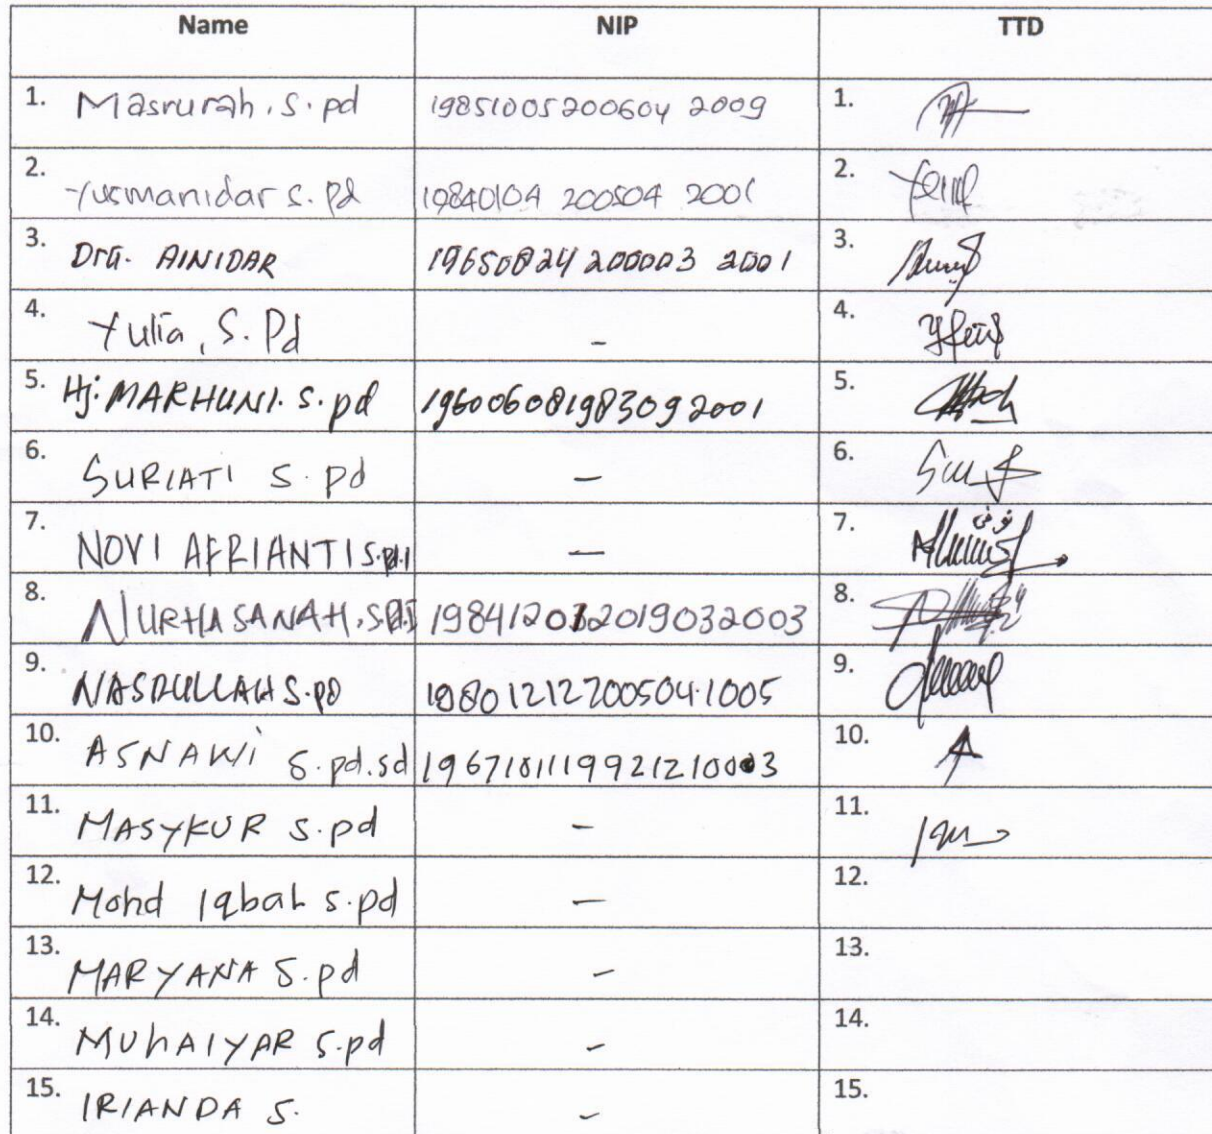 Name NIP TTD
1. Masrurah, S.pd 19851005200604 2009 1.
2. Yusmanidar S.Pd 19840104 200504 2001 2.
3. Dra. AINIDAR 19650824 200003 2001 3.
4. Yulia, S.Pd - 4.
5. Hj. MARHUNI. S.pd 196006081983092001 5.
6. SURIATI S.pd - 6.
7. NOVI AFRIANTI S.pd.I - 7.
8. NURHASANAH, S.Pd.I 198412032019032003 8.
9. NASRULLAH S.pd 19801212200504.1005 9.
10. ASNAWi S.pd.sd 10.
11. MASYKUR S.pd - 11.
12. Mohd Iqbal S.pd - 12.
13. MARYANA S.pd - 13.
14. MUhAIYAR S.pd - 14.
15. IRIANDA S. - 15.